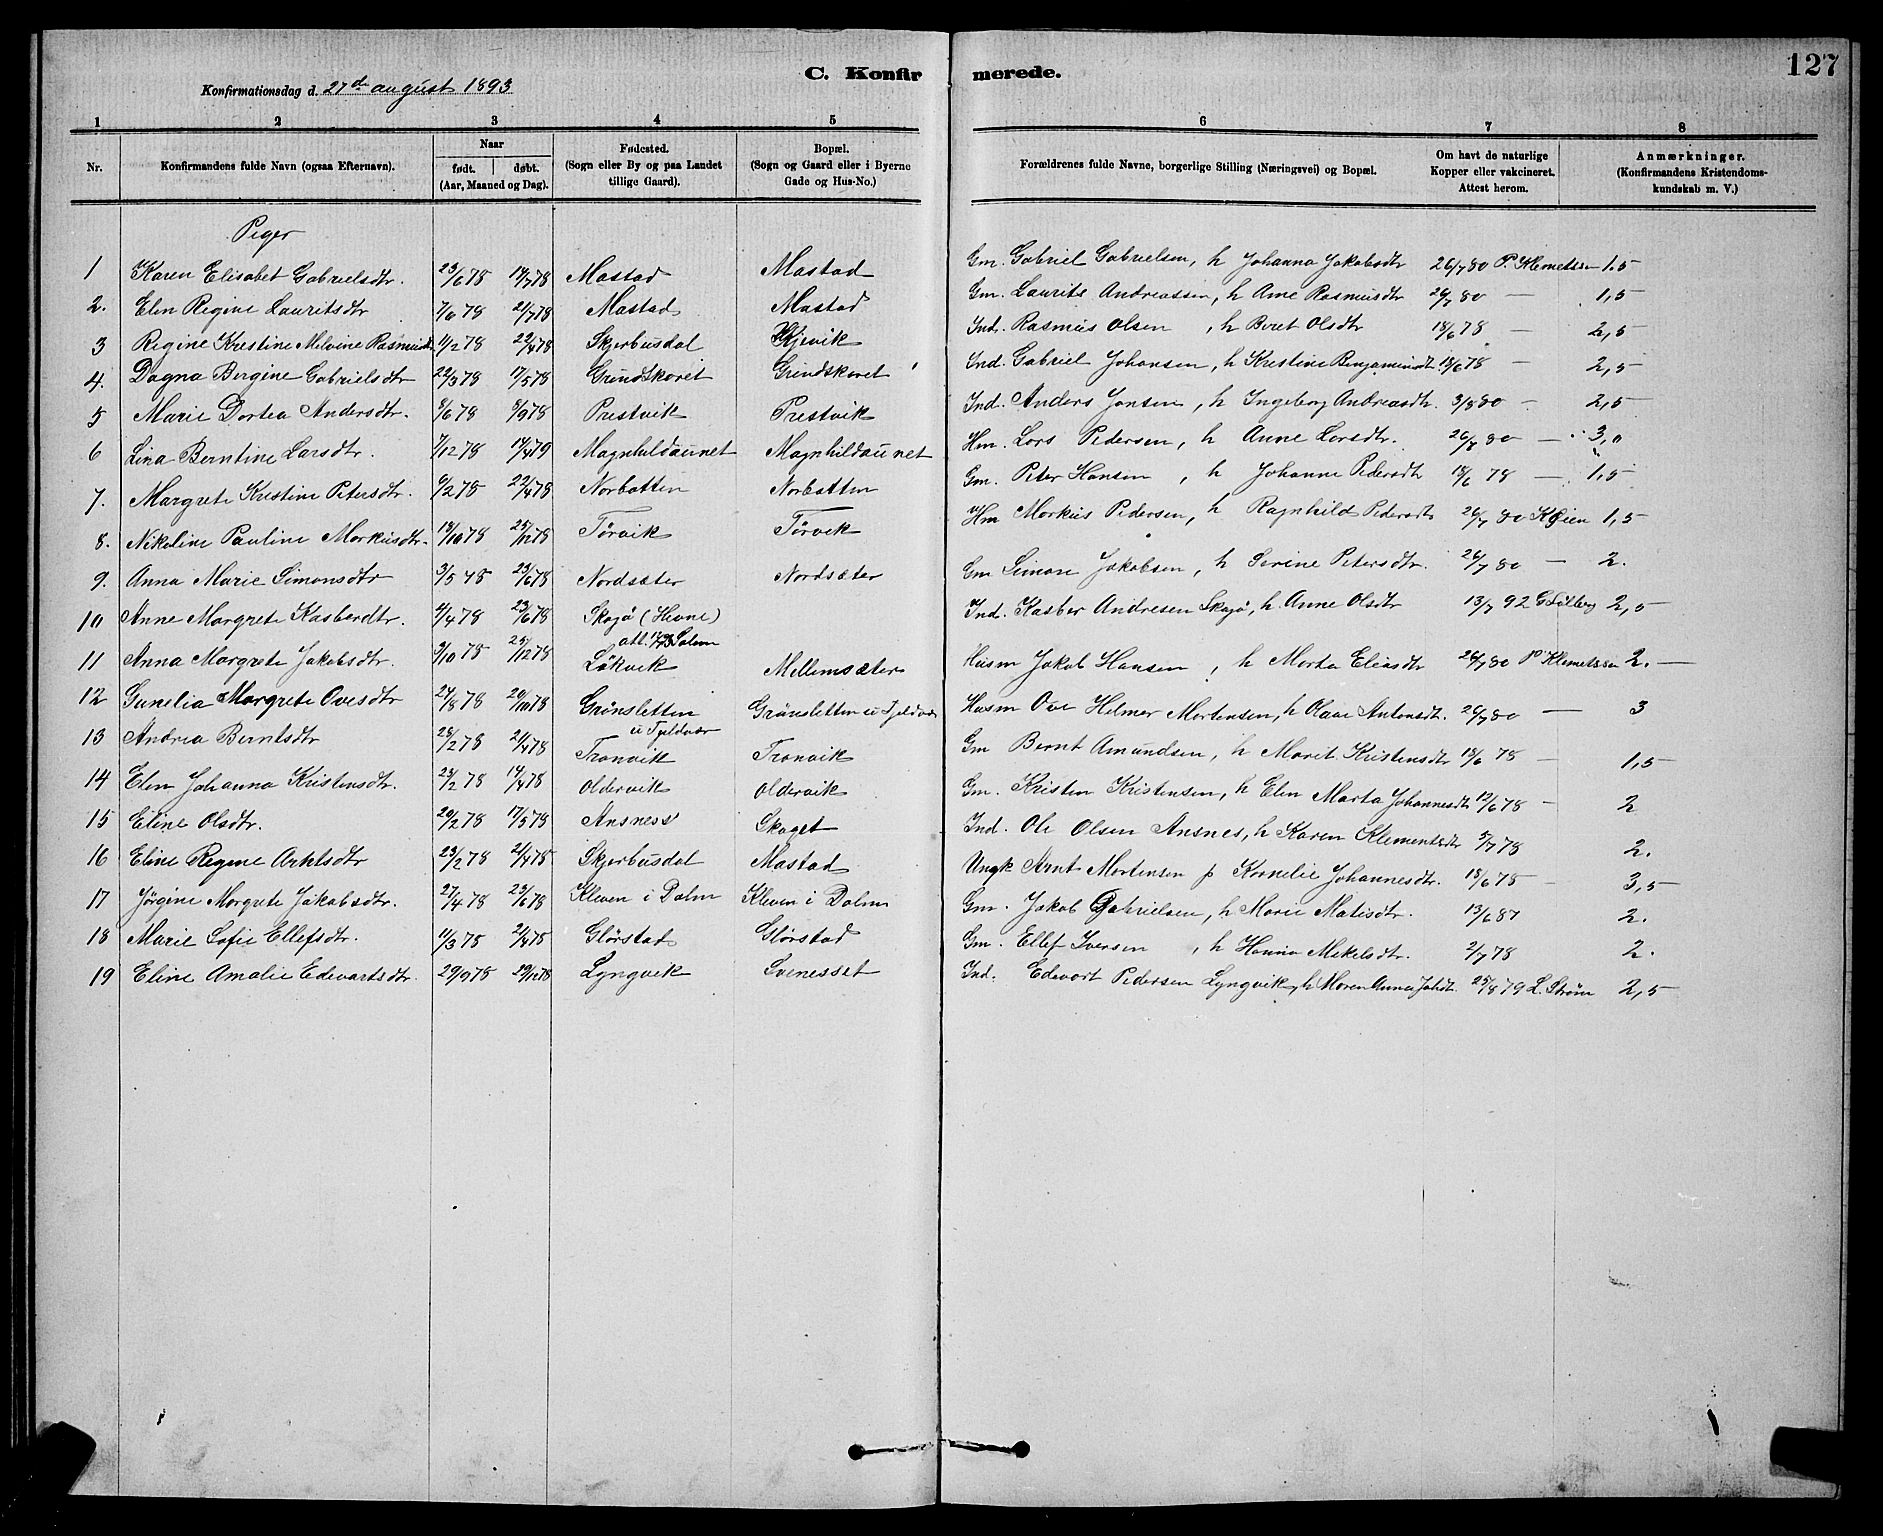 C. Konfirmerede.
127
Konfirmationsdag d. 27de august 1893
1 2 3 4 5 6 7 8
Nr.
Konfirmandens fulde Navn (ogsaa Efternavn).
Naar
født. døbt.
(Aar, Maaned og Dag).
Fødested.
(Sogn eller By og paa Landet
tillige Gaard).
Bopæl.
(Sogn og Gaard eller i Byerne
Gade og Hus-No.)
Forældrenes fulde Navne, borgerlige Stilling (Næringsvei) og Bopæl.
Om havt de naturlige
Kopper eller vakcineret.
Attest herom.
Anmærkninger.
(Konfirmandens Kristendoms-
kundskab m. V.)
Piger
1 Karen Elisabet Gabrielsdtr. 23/6 78 14/7 78 Mastad Mastad Gm. Gabriel Gabrielsen, h Johanna Jakobsdtr 26/7 80 P. Klemetsen 1.5
2. Elen Regine Lauritsdtr 7/6 78 21/7 78 Mastad Mastad Gm. Laurits Andreassen, h Ane Rasmusdtr 26/7 80 — 1,5
3 Regine Kristine Melvine Rasmusdtr 11/2 78 22/4 78 Skjerbusdal Kjevik Ind. Rasmus Olsen, h Beret Olsdtr 18/6 78 — 2,5
4. Dagna Bergine Gabrielsdtr 22/3 78 17/5 78 Grundskaret Grundskaret Ind. Gabriel Johansen, h Kristine Benjaminsdt. 18/6 78 — 2,5
5 Marie Dortea Andersdtr. 8/6 78 8/9 78 Prestvik Prestvik Ind. Anders Jonsen, h Ingeborg Andreasdtr. 3/8 80 — 2,5
6 Lina Berntine Larsdtr. 7/12 78 14/4 79 Magnhildaunet Magnhildaunet Hm. Lars Pedersen, h Anne Larsdtr. 26/7 80 — 3,0
7. Margrete Kristine Petersdtr. 6/2 78 22/4 78 Norbotten Norbotten Gm. Peter Hansen, h Johanne Pedersdtr 18/6 78 — 1,5
8. Nikoline Pauline Markusdtr. 13/10 78 25/12 78 Tørvik Tørvik Hm Markus Pedersen, h Ragnhild Pedersdtr 26/7 80 KØien 1,5
9. Anna Marie Simonsdtr 3/5 78 23/6 78 Nordsæter Nordsæter Gm Simon Jakobsen, h Serine Petersdtr. 26/7 80 — 2.
10 Anne Margrete Kasberdtr. 4/4 78 23/6 78 Skajø (Hevne) Ind. Kasber Andresen Skajø, h. Anne Olsdtr 13/7 92 G Solberg 2,5
att. Solem
11 Anna Margrete Jakobsdtr. 9/10 78 25/12 78 Løkvik Mellemsæter Husm Jakob Hansen, h Marta Eliasdtr 26/7 80 P Klemetsen 2. —
12 Gunelia Margrete Ovesdtr 24/8 78 20/10 78 Grønsletten Grønsletten u Fjeldvær Husm Ove Hilmer Mortensen, h Olava Antonsdt. 26/7 80 — 3
u Fjeldvær
13 Andrea Berntsdtr 28/2 78 21/4 78 Tranvik Tranvik Gm Bernt Amundsen, h Marit Kristensdtr 18/6 78 — 1,5
14 Elen Johanna Kristensdtr. 23/2 78 14/4 78 Oldervik Oldervik Gm. Kristen Kristensen, h Elen Marta Johannesdtr 12/6 78 — 2
15 Eline Olsdtr. 20/2 78 17/5 78 Ansness Skaget Ind. Ole Olsen Ansnes, h Karen Klementsdtr 5/7 78 2.
16 Eline Regine Arntsdtr 23/2 78 21/4 78 Skjerbusdal Mastad Ungk Arnt Mortensen p Kornelie Johannesdtr. 18/6 78 — 3,5
17 Jørgine Margrete Jakobsdtr. 27/4 78 23/6 78 Kleven i Dalm Kleven i Dolm Gm. Jakob Gabrielsen, h Marie Matisdtr. 13/6 87 2.
18 Marie Sofie Ellefsdtr. 11/3 78 21/4 78 Glørstad Glørstad Gm. Ellef Iversen, h Hanna Mikelsdtr. 2/7 78 2.
19 Eline Amalie Edevartsdtr. 29/9 78 29/12 78 Lyngvik Svenesset Ind. Edevart Pedersen Lyngvik, h Maren Anna Johdt. 25/8 79 L. Strøm 2,5